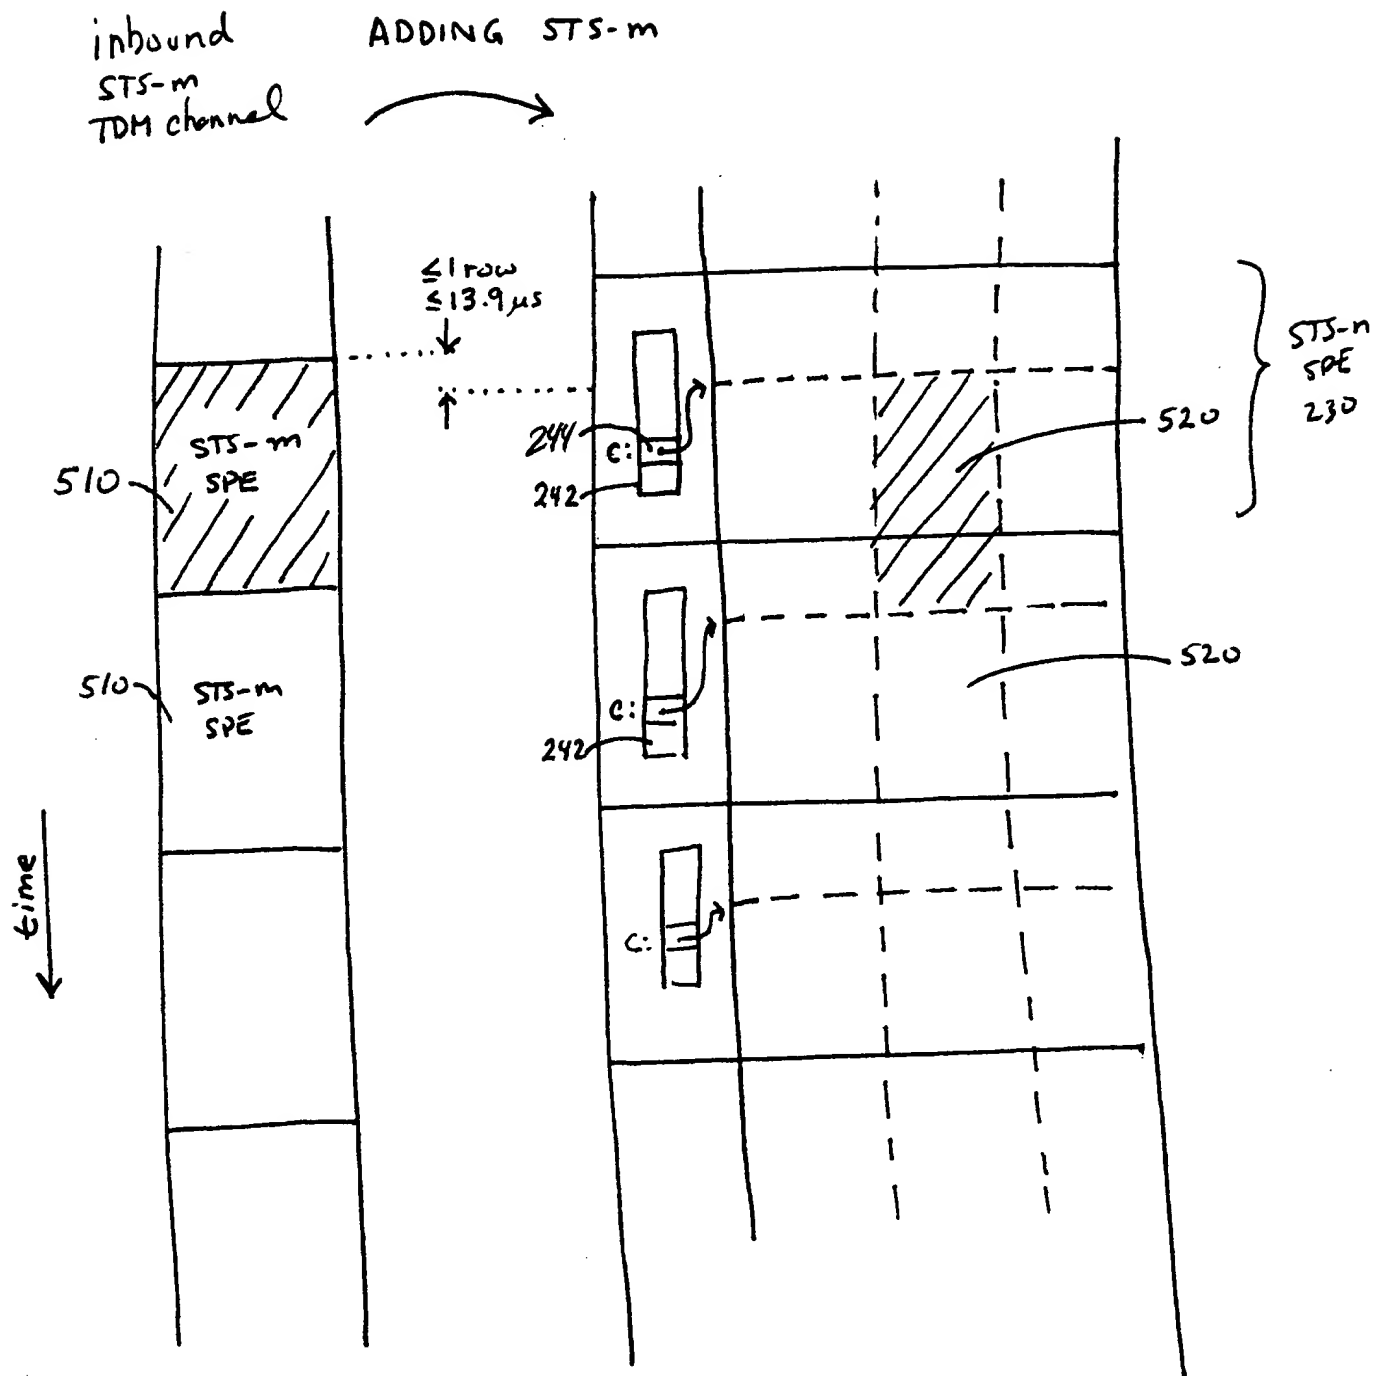 inbound
STS-m
TDM channel
ADDING STS-m
≤1 row
≤13.9 μs
STS-m
SPE
510
STS-m
SPE
510
time
244
C:
242
C:
242
C:
520
520
STS-n
SPE
230